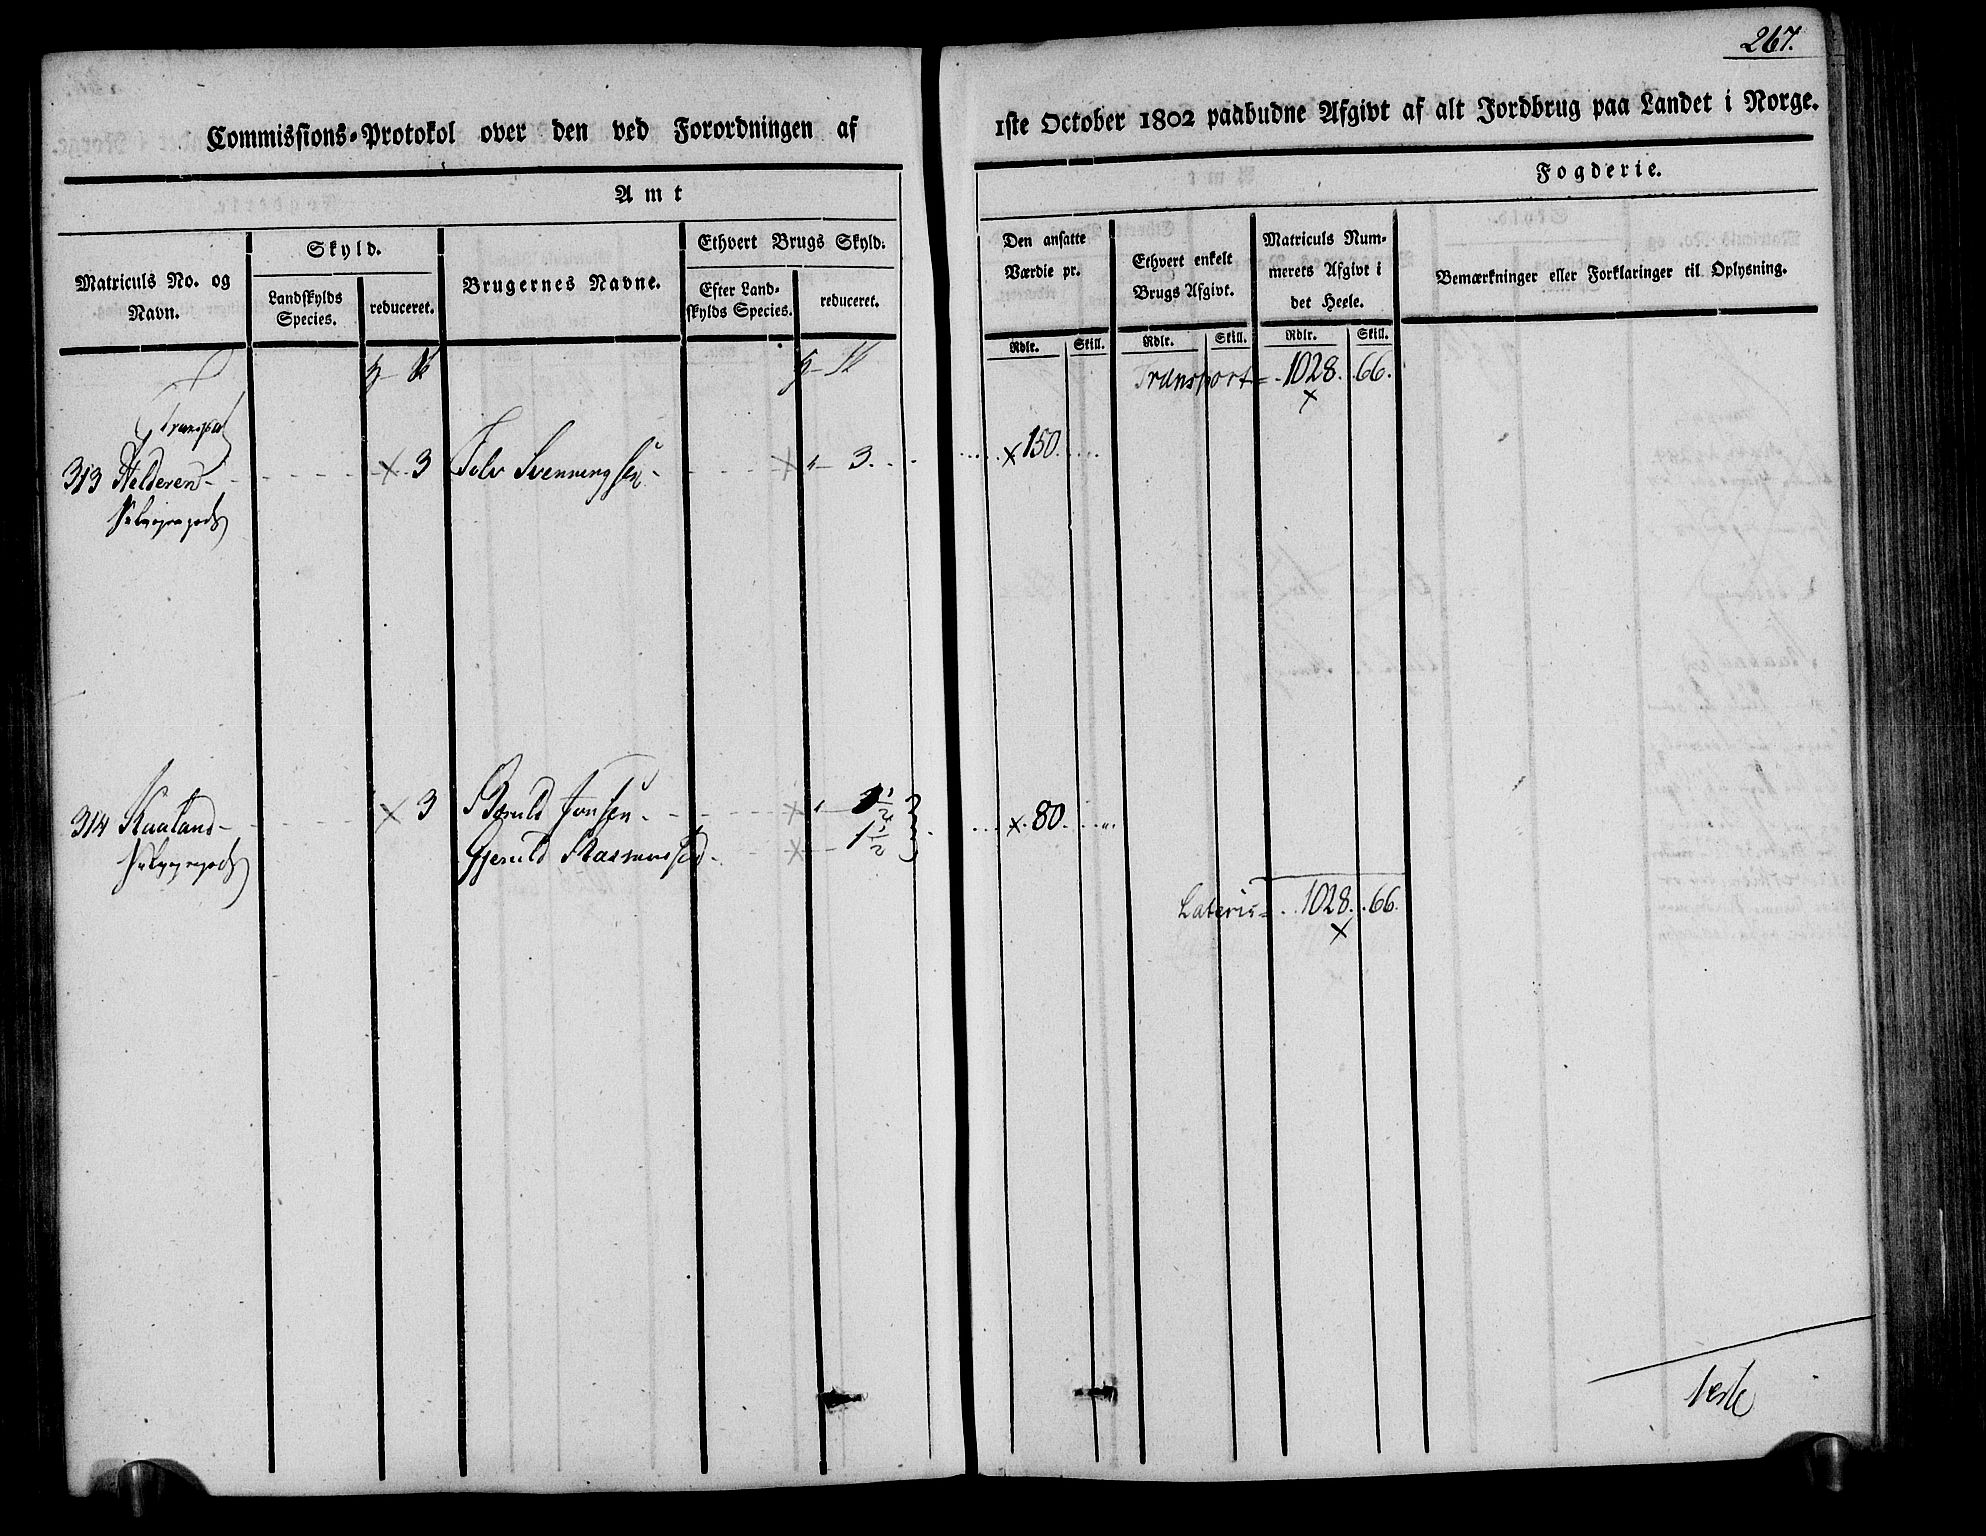 267.
Commissions-Protokol over den ved Forordningen af 1ste October 1802 paabudne Afgivt af alt Jordbrug paa Landet i Norge.
Amt
Fogderie.
Matriculs No. og Navn.
Skyld.
Landskylds Species.
reduceret.
Brugernes Navne.
Ethvert Brugs Skyld:
Efter Landskylds Species.
reduceret.
Den ansatte Værdie pr.
Rdlr. Skill.
Ethvert enkelt Brugs Afgivt.
Rdlr. Skill.
Matriculs Nummerets Afgivt i det Heele.
Rdlr. Skill.
Bemærkninger eller Forklaringer til Oplysning.
Transport 1028. 66.
Transport
313 Helderen 3 Tolv Svenningsen 3. 150.
314 Kaaland 3 Bernld Jonsen 1 1/2 80.
Gjeruld Rasmussen 1 1/2
Lateris 1028. 66.